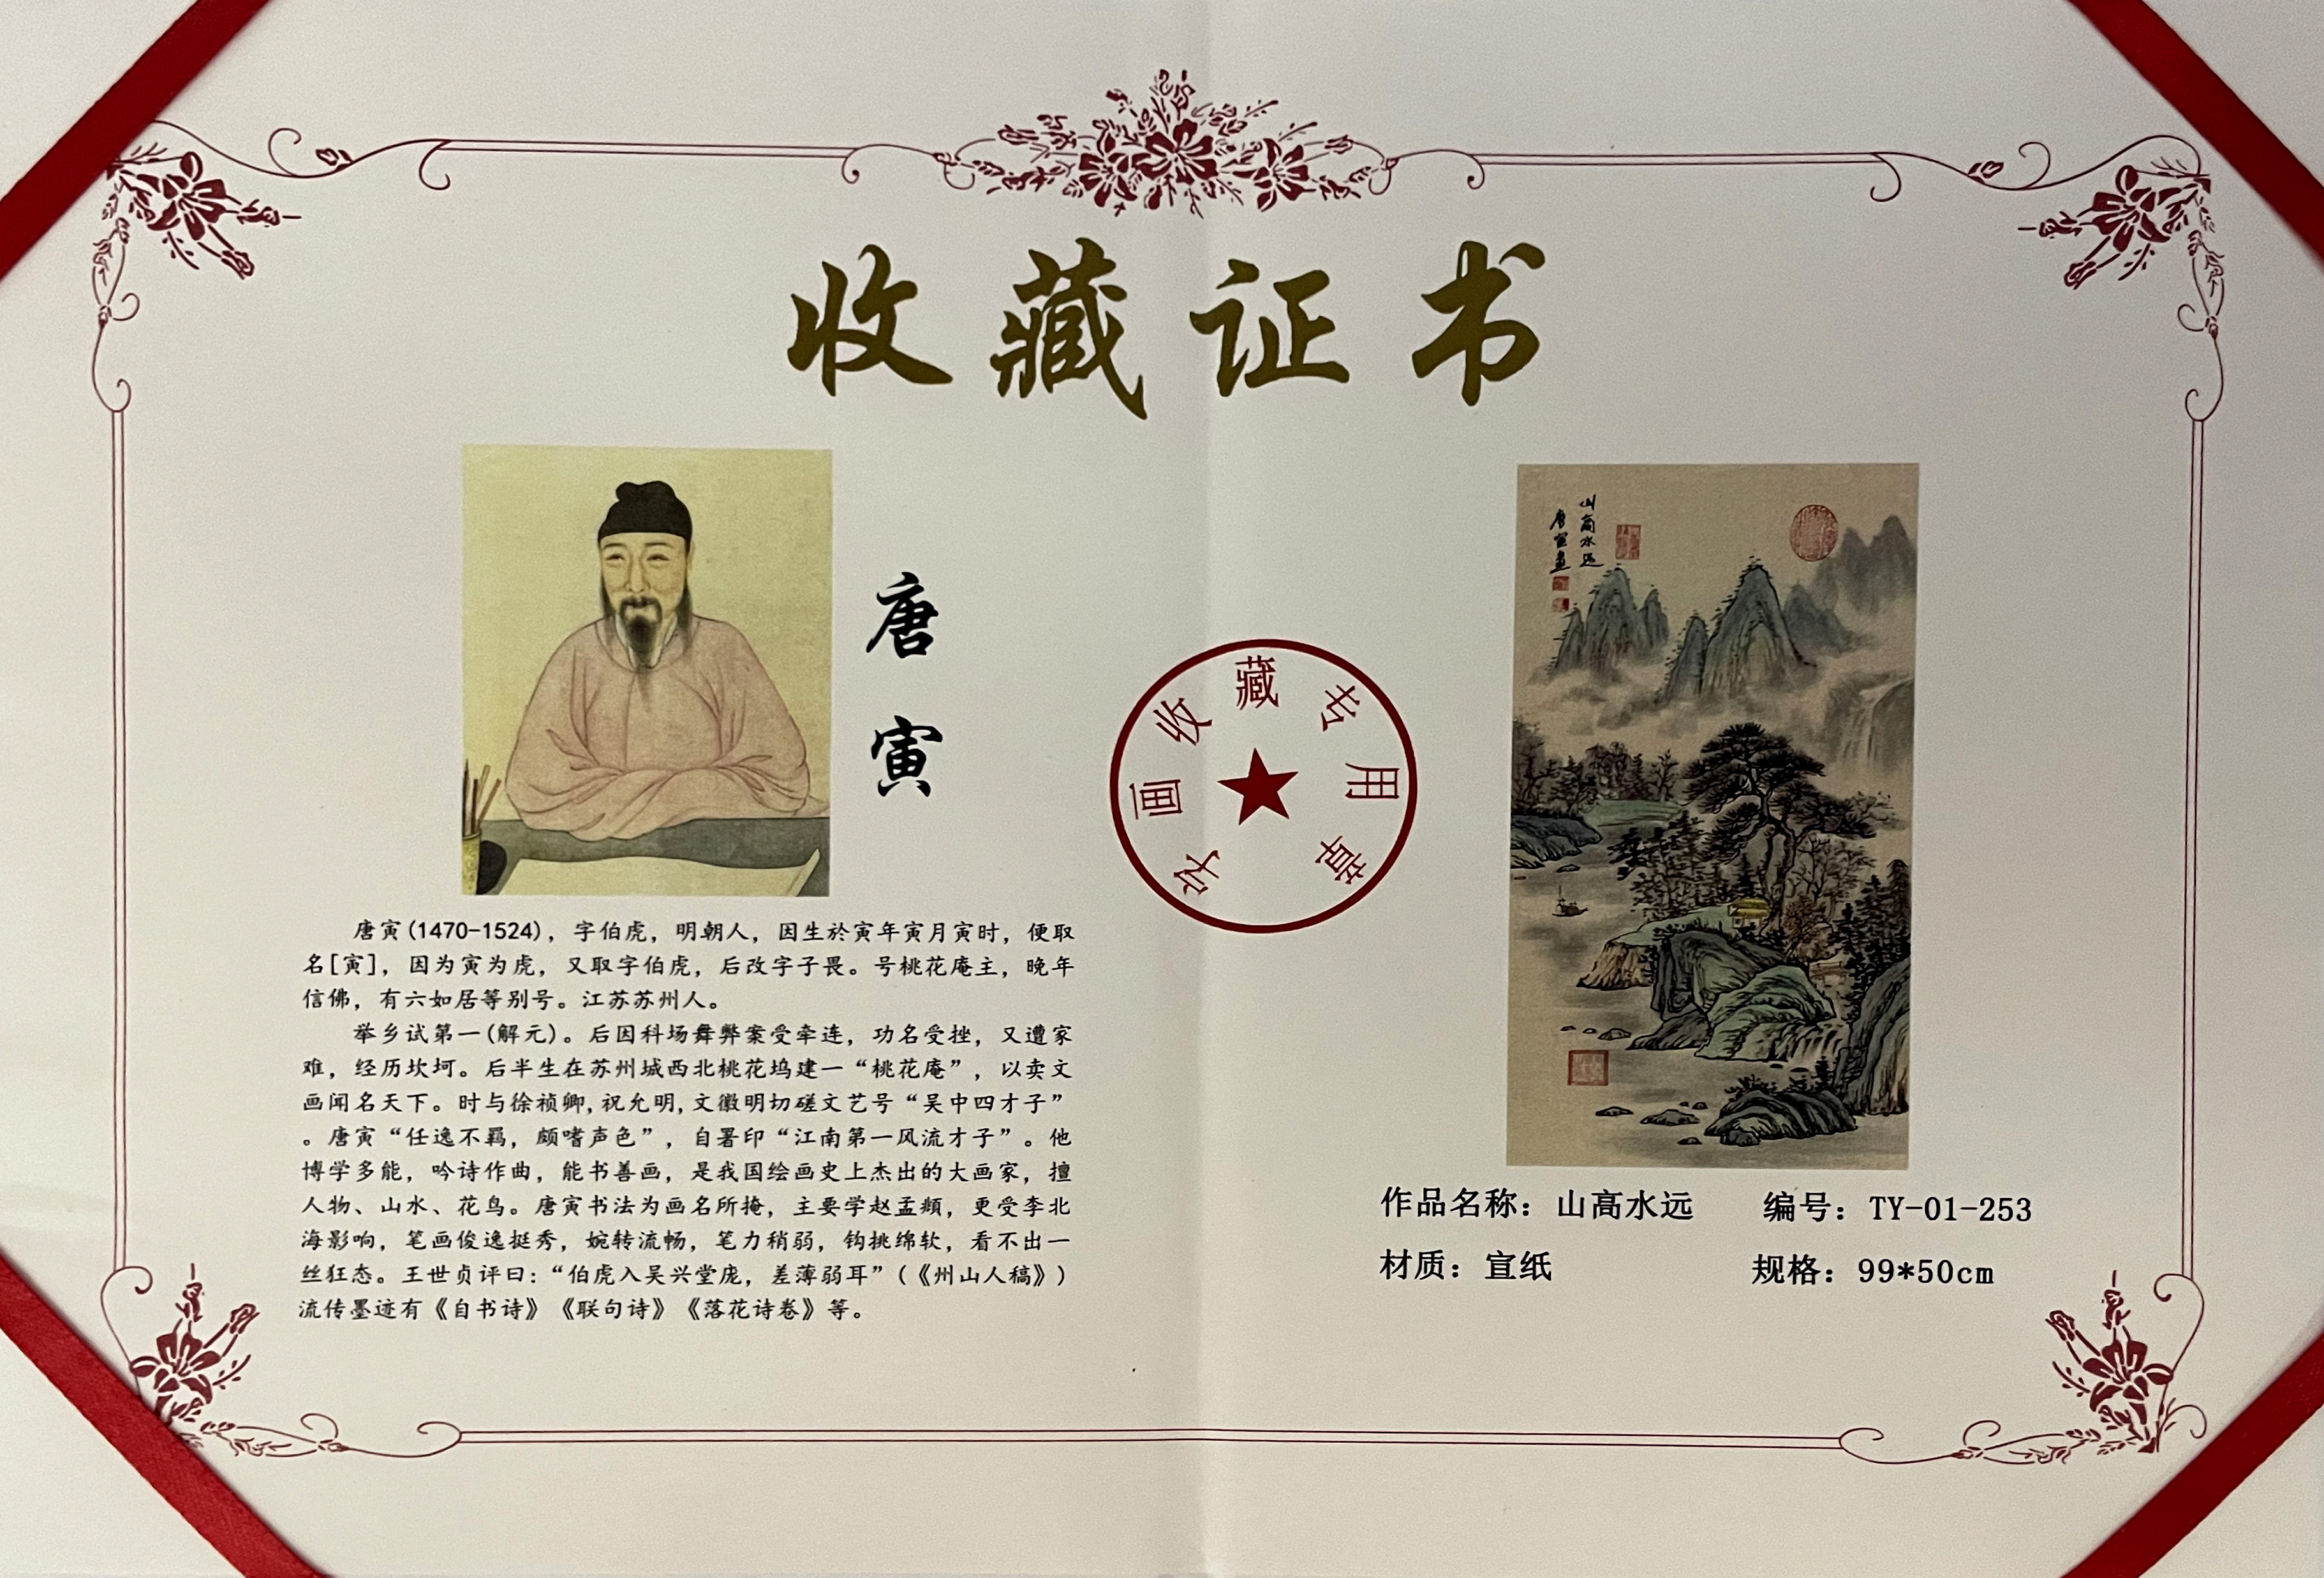 收藏证书
唐寅
唐寅(1470-1524)，字伯虎，明朝人，因生於寅年寅月寅时，便取
名[寅]，因为寅为虎，又取字伯虎，后改字子畏。号桃花庵主，晚年
信佛，有六如居等别号。江苏苏州人。
举乡试第一(解元)。后因科场舞弊案受牵连，功名受挫，又遭家
难，经历坎坷。后半生在苏州城西北桃花坞建一“桃花庵”，以卖文
画闻名天下。时与徐祯卿,祝允明,文徽明切磋文艺号“吴中四才子”
。唐寅“任逸不羁，颇嗜声色”，自署印“江南第一风流才子”。他
博学多能，吟诗作曲，能书善画，是我国绘画史上杰出的大画家，擅
人物、山水、花鸟。唐寅书法为画名所掩，主要学赵孟頫，更受李北
海影响，笔画俊逸挺秀，婉转流畅，笔力稍弱，钩挑绵软，看不出一
丝狂态。王世贞评曰：“伯虎入吴兴堂庑，差薄弱耳”(《州山人稿》)
流传墨迹有《自书诗》《联句诗》《落花诗卷》等。
字画收藏专用章
山高水远
唐寅画
作品名称：山高水远 编号：TY-01-253
材质：宣纸 规格：99*50cm